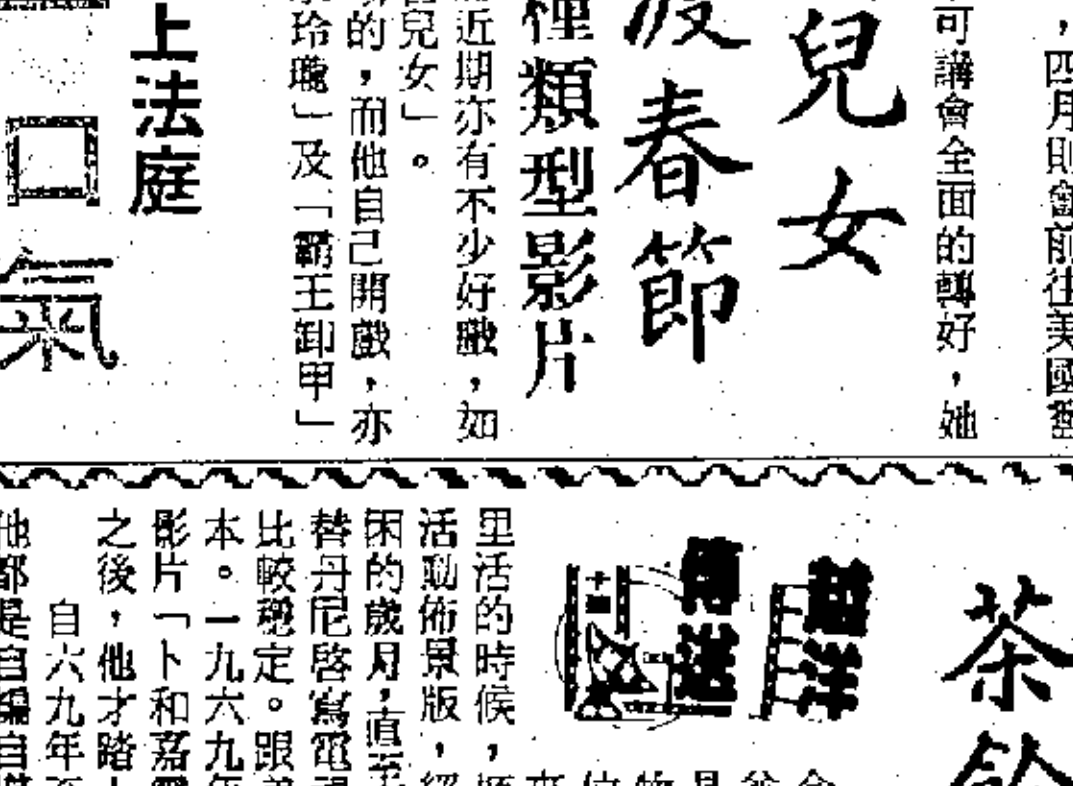 ，四月則會前往美國
可講會全面的轉好，她
兒女
春節
種類型影片
近期亦有不少好戲，如
兒女」。
的，而他自己開戲，亦
玲瓏」及「霸王卸甲」
上法庭
口氣
茶
里活的時候，
活動佈景版，
困的歲月，直至
替丹尼啓寫電視
比較穩定。跟
本。一九六九年
影片「卜和嘉
之後，他才踏
自六九年
他都是自編自